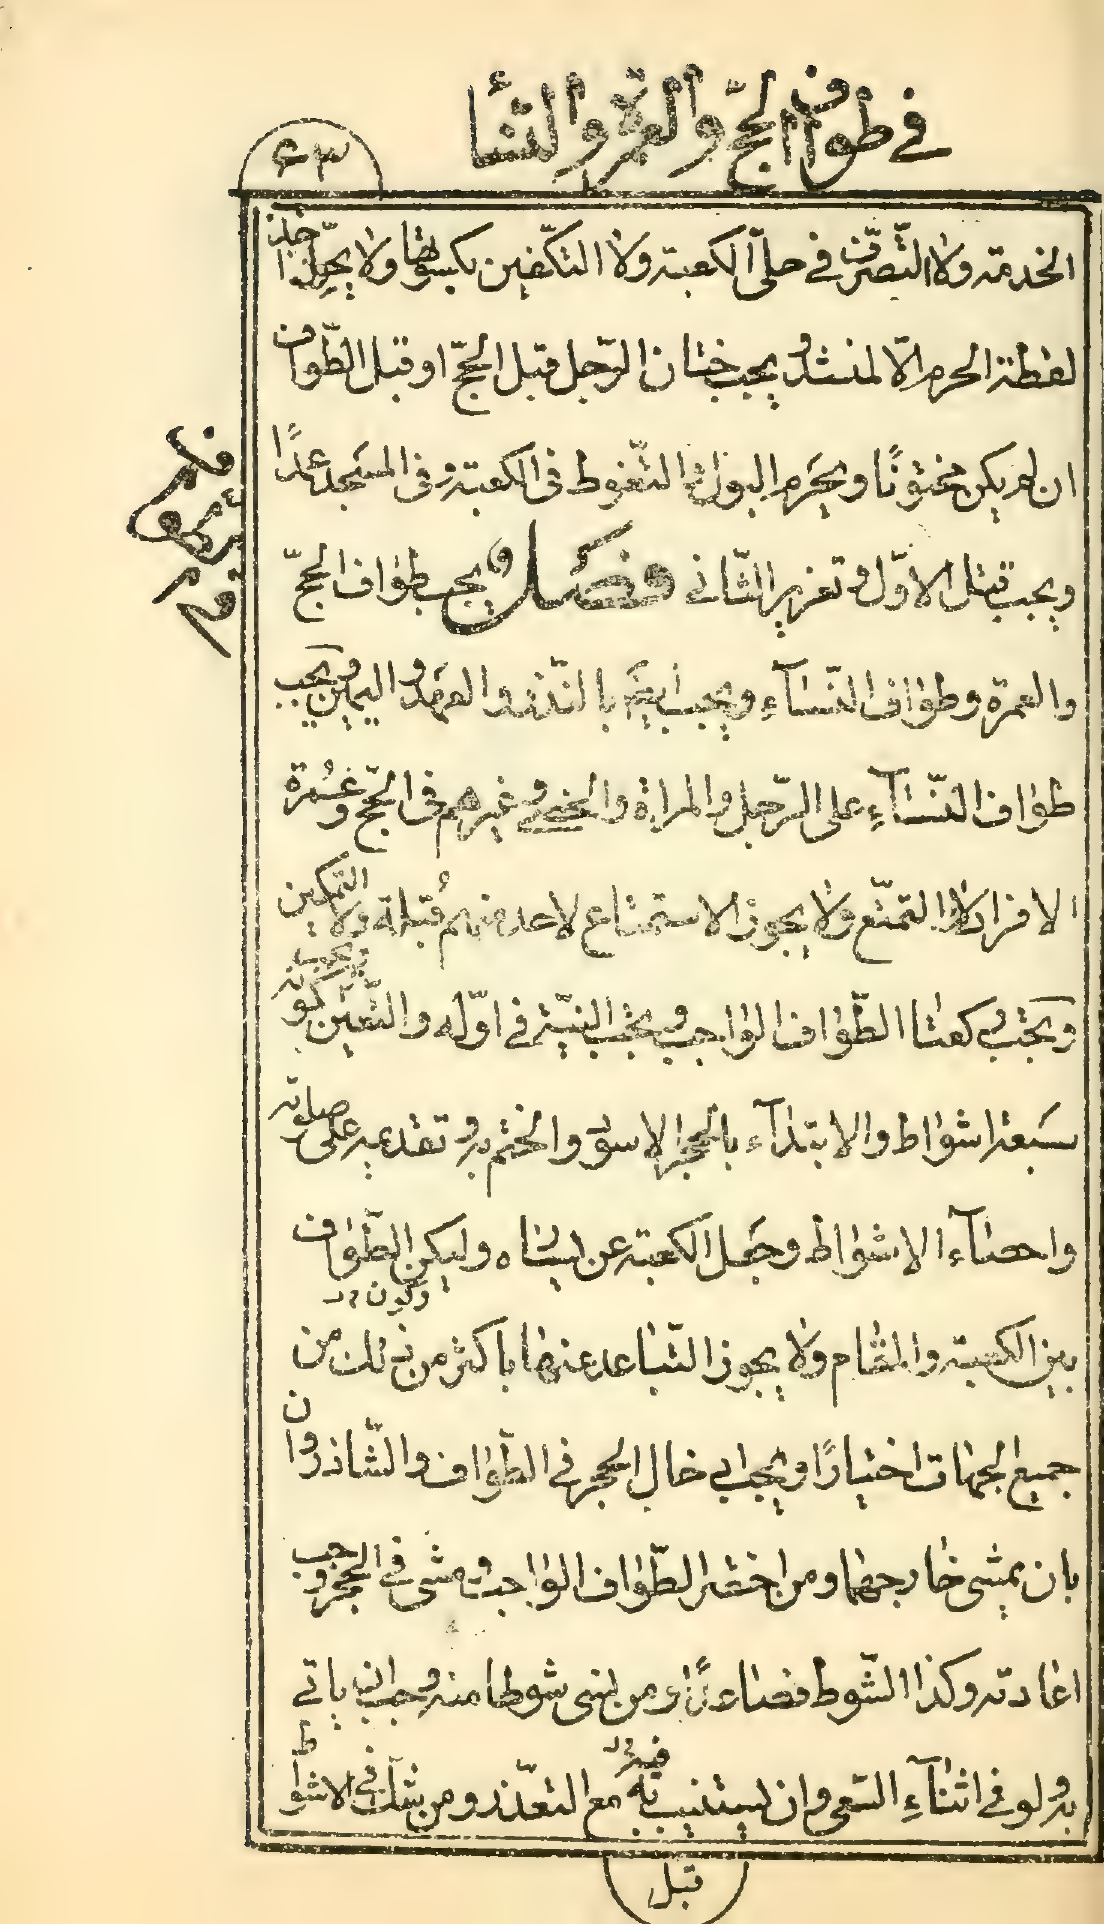 في طواف الحجّ والعمرة والنسا
٤٣
الخدمة ولا التّصرّف في حلىّ الكعبة ولا التكفين بكسوتها ولا يجوز اخذ
لقطة الحرم الّا لمنشد ويجب ختان الرّجل قبل الحجّ او قبل الطّواف
ان لم يكن مختونًا ويحرم البول والتّغوط فى الكعبة وفى المسجد عمدًا
ويجب قتل الاوّل وتعزير الثّاني فصل ويجب طواف الحجّ
والعمرة وطواف النّسآء ويجب ايضًا بالنّذر والعهد واليمين ويجب
طواف النّسآءِ على الرّجل والمراة والخصىّ وغيرهم فى الحجّ وعُمرة
الافراد لا التمتّع ولا يجوز الاستمتاع لاحد منهم قُبلة ولا التمكين
ويجب ركعتا الطّواف الواجب ويجب النيّة في اوّله والتّعيين وكونه
سَبعة اشواط والابتدآء بالحجر الاسود والختم به وتقديمه على صلوته
واحصآء الاشواط وجَعل الكعبة عن يساره وليكن الطّواف
ويكون
بين الكعبة والمقام ولا يجوز التّباعد عنها باكثر من ذلك من
جميع الجهات اختيارًا ويجب ادخال الحجر في الطّواف والشّاذروان
بان يمشى خارجهما ومن اختصر الطّواف الواجب ومشى في الحجر وجب
اعادته وكذا الشّوط فصاعدًا ومن نسى شوطا منه وجب ان ياتي
به ولو في اثنآءِ السّعى وان يستنيب فيه مع التعذّر ومن شكّ في الاشواط
قبل